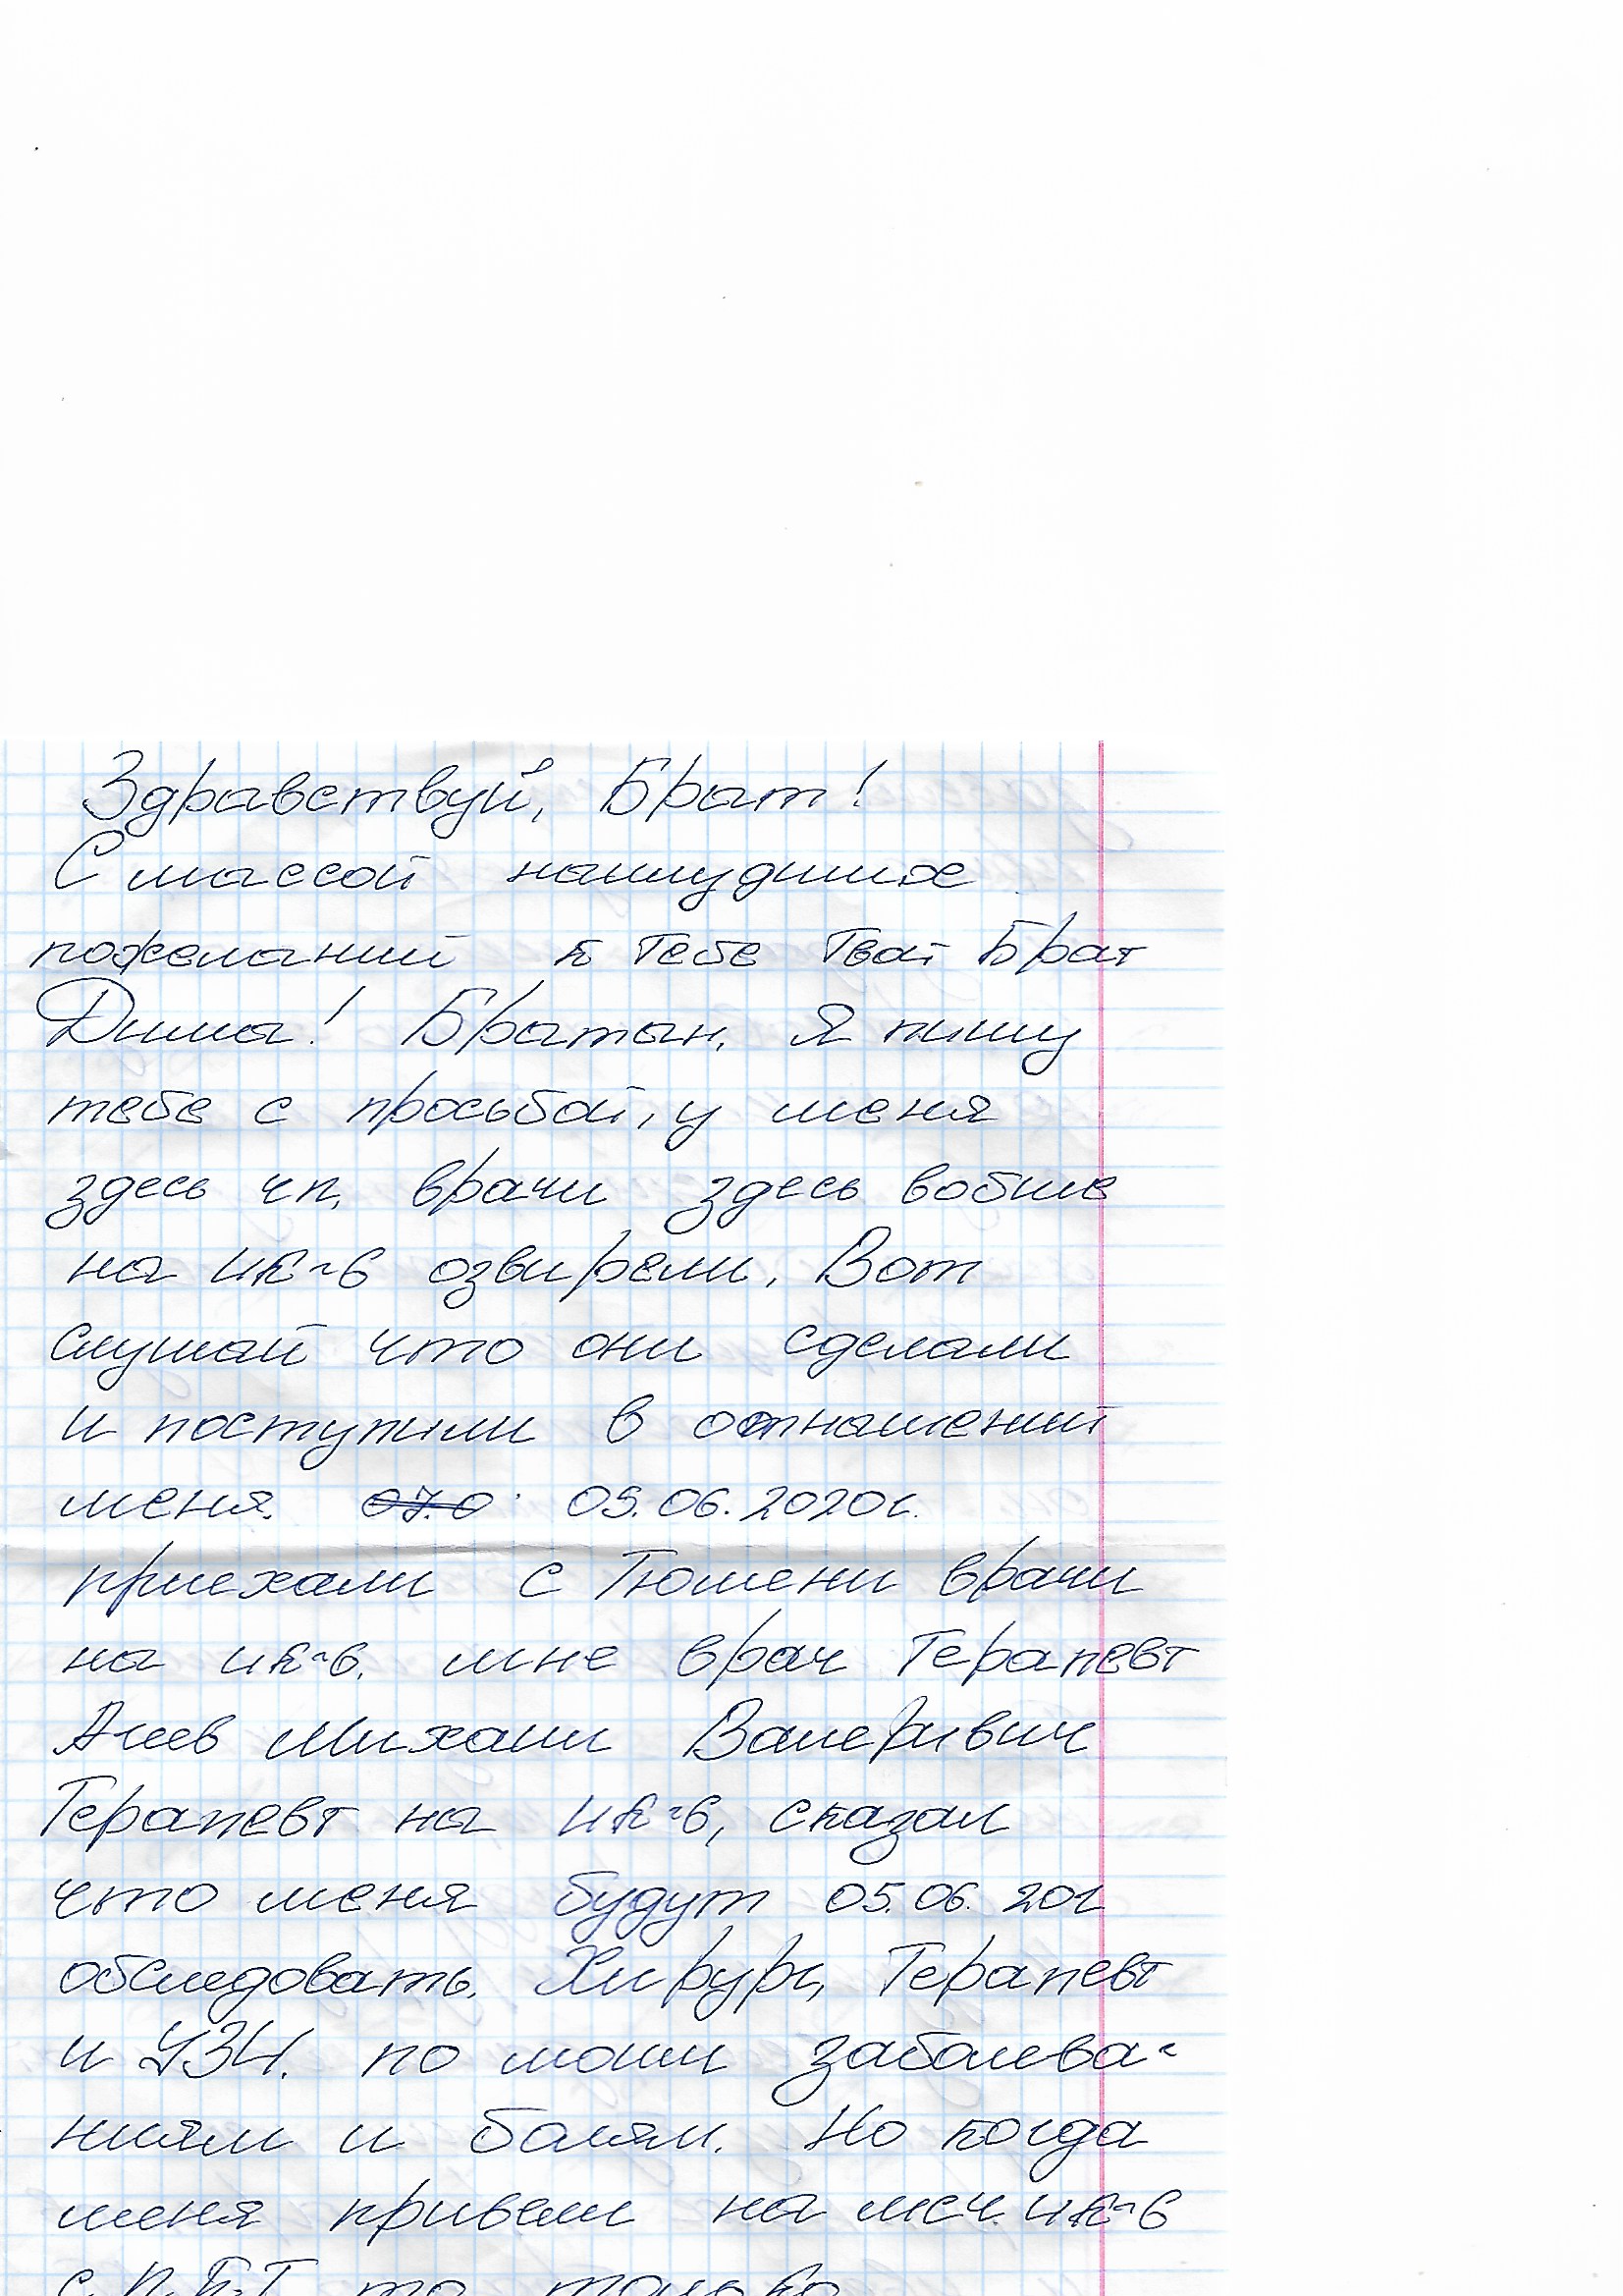 Здравствуй, Брат!
С массой наилудших
пожеланий к Тебе Твой Брат
Дима! Братан, я пишу
тебе с просьбой, у меня
здесь чп, врачи здесь вобше
на ик-6 озвирели. Вот
слушай что они сделали
и поступили в отнашений
меня. 07.0 05.06.2020г.
приехали с Тюмени врачи
на ик-6. мне врач Терапевт
Алиев Михаил Валеривич
Терапевт на ик-6, сказал
что меня будут 05.06. 20г
обследовать. Хирург, Терапевт
и УЗИ. по моим заболева-
ниям и балям. Но когда
меня привели на мсч. ик-6
с П.К.Т то только